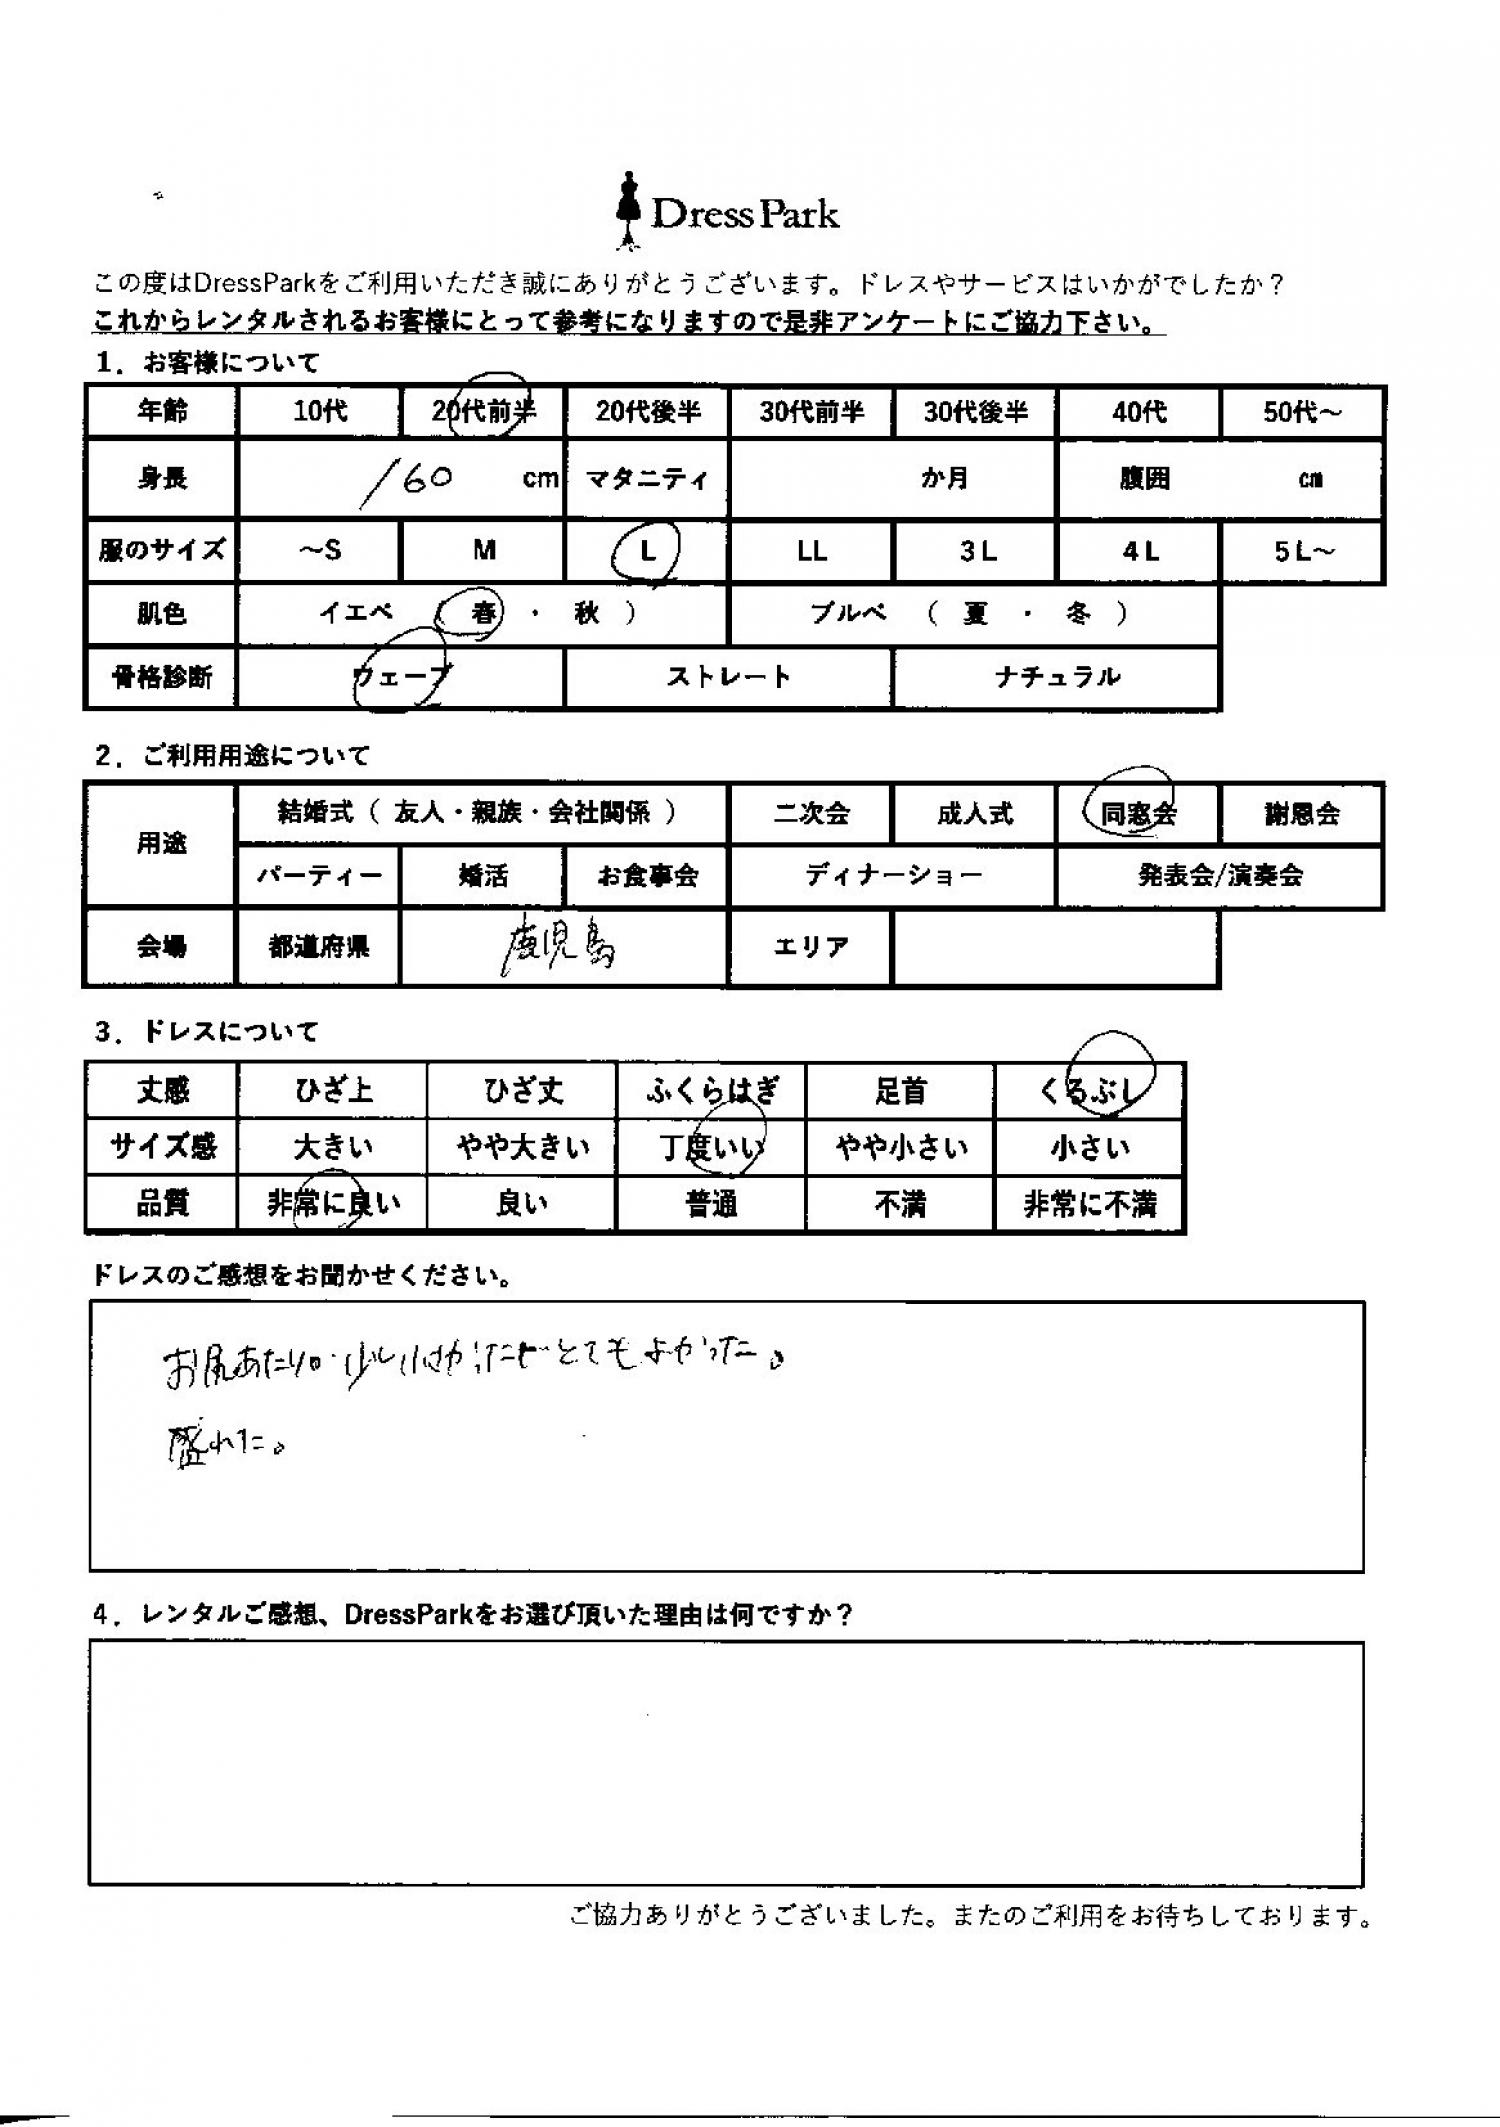 DressPark
この度はDressParkをご利用いただき誠にありがとうございます。ドレスやサービスはいかがでしたか?
これからレンタルされるお客様にとって参考になりますので是非アンケートにご協力下さい。
1. お客様について
年齢 10代 20代前半 20代後半 30代前半 30代後半 40代 50代~
身長 160 cm マタニティ か月 腹囲 cm
服のサイズ ~S M L LL 3L 4L 5L~
肌色 イエベ ( 春 ・ 秋 ) ブルベ ( 夏 ・ 冬 )
骨格診断 ウェーブ ストレート ナチュラル
2. ご利用用途について
用途 結婚式 ( 友人・親族・会社関係 ) 二次会 成人式 同窓会 謝恩会
パーティー 婚活 お食事会 ディナーショー 発表会/演奏会
会場 都道府県 鹿児島 エリア
3. ドレスについて
丈感 ひざ上 ひざ丈 ふくらはぎ 足首 くるぶし
サイズ感 大きい やや大きい 丁度いい やや小さい 小さい
品質 非常に良い 良い 普通 不満 非常に不満
ドレスのご感想をお聞かせください。
お尻あたりが少し小さかったけどとてもよかった。
盛れた。
4. レンタルご感想、DressParkをお選び頂いた理由は何ですか?
ご協力ありがとうございました。またのご利用をお待ちしております。